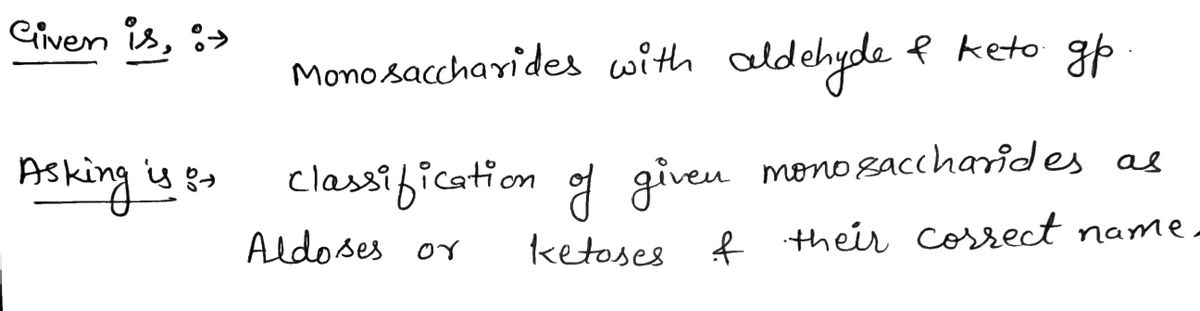 Given is, :→
Monosaccharides with aldehyde & keto gp.
Asking is :→ classification of given monosaccharides as
Aldoses or ketoses & their correct name.